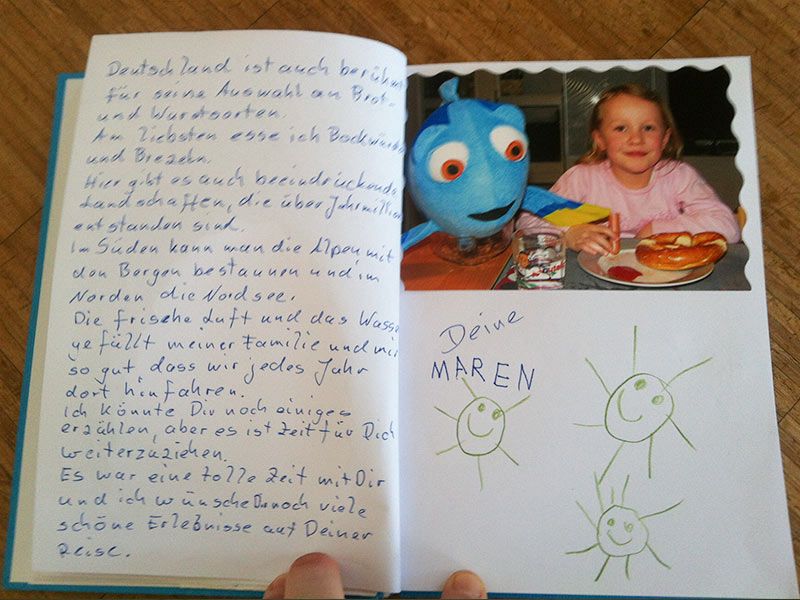 Deutschland ist auch berühmt
für seine Auswahl an Brot-
und Wurstsorten.
Am liebsten esse ich Bockwürste
und Brezeln.
Hier gibt es auch beeindruckende
Landschaften, die über Jahrmillion
entstanden sind.
Im Süden kann man die Alpen mit
den Bergen bestaunen und im
Norden die Nordsee.
Die frische Luft und das Wasser
gefällt meiner Familie und mir
so gut, dass wir jedes Jahr
dort hinfahren.
Ich könnte Dir noch einiges
erzählen, aber es ist Zeit für Dich
weiterzuziehen.
Es war eine tolle Zeit mit Dir
und ich wünsche Dir noch viele
schöne Erlebnisse auf Deiner
Reise.
Deine
MAREN